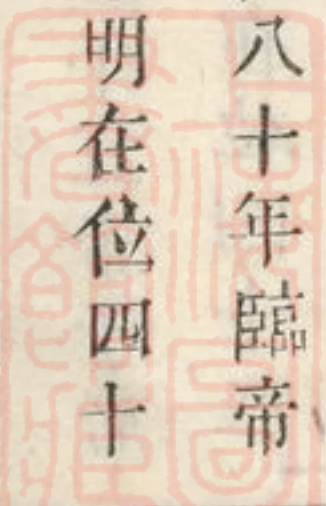 八十年臨帝
明在位四十